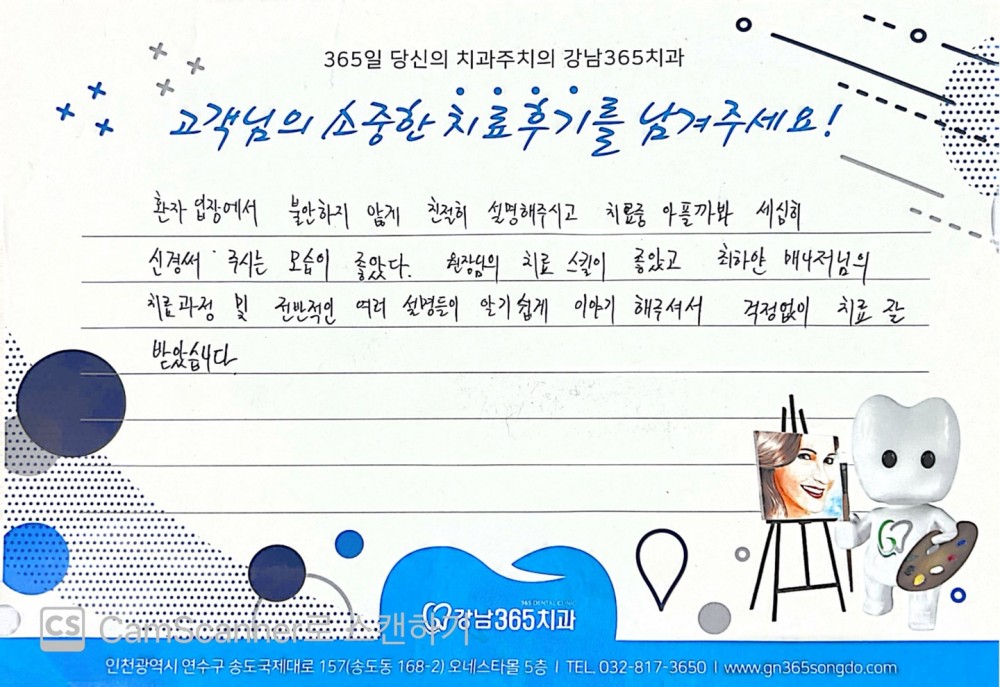 365일 당신의 치과주치의 강남365치과
고객님의 소중한 치료후기를 남겨주세요!
환자 입장에서 불안하지 않게 친절히 설명해주시고 치료중 아플까봐 세심히
신경써 주시는 모습이 좋았다. 원장님의 치료 스킬이 좋았고 최하얀 매니저님의
치료과정 및 전반적인 여러 설명들이 알기 쉽게 이야기 해주셔서 걱정없이 치료 잘
받았습니다
365 DENTAL CLINIC
강남365치과
CS CamScanner로 스캔하기
인천광역시 연수구 송도국제대로 157(송도동 168-2) 오네스타몰 5층 | TEL. 032-817-3650 | www.gn365songdo.com